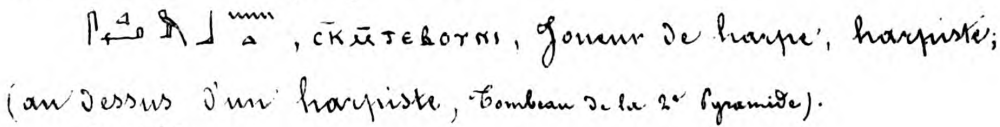 , ⲥⲕⲙ̄ⲧⲉⲃⲟⲩⲛⲓ, Joueur de harpe, harpiste;
(au dessus d'un harpiste, Tombeau de la 2e Pyramide).